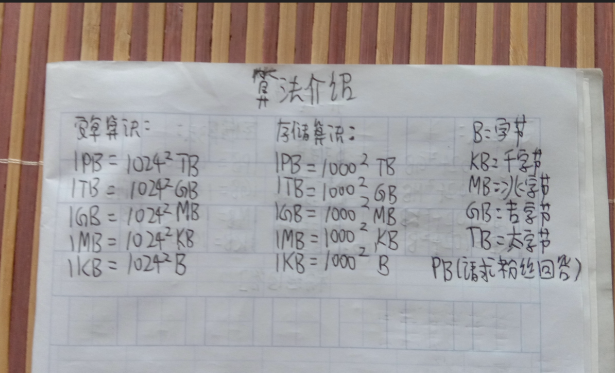 算法介绍
算识：
1PB=1024²TB
1TB=1024²GB
1GB=1024²MB
1MB=1024²KB
1KB=1024²B
存储算识：
1PB=1000²TB
1TB=1000²GB
1GB=1000²MB
1MB=1000²KB
1KB=1000²B
B=字节
KB=千字节
MB=兆字节
GB=吉字节
TB=太字节
PB(请求粉丝回答)